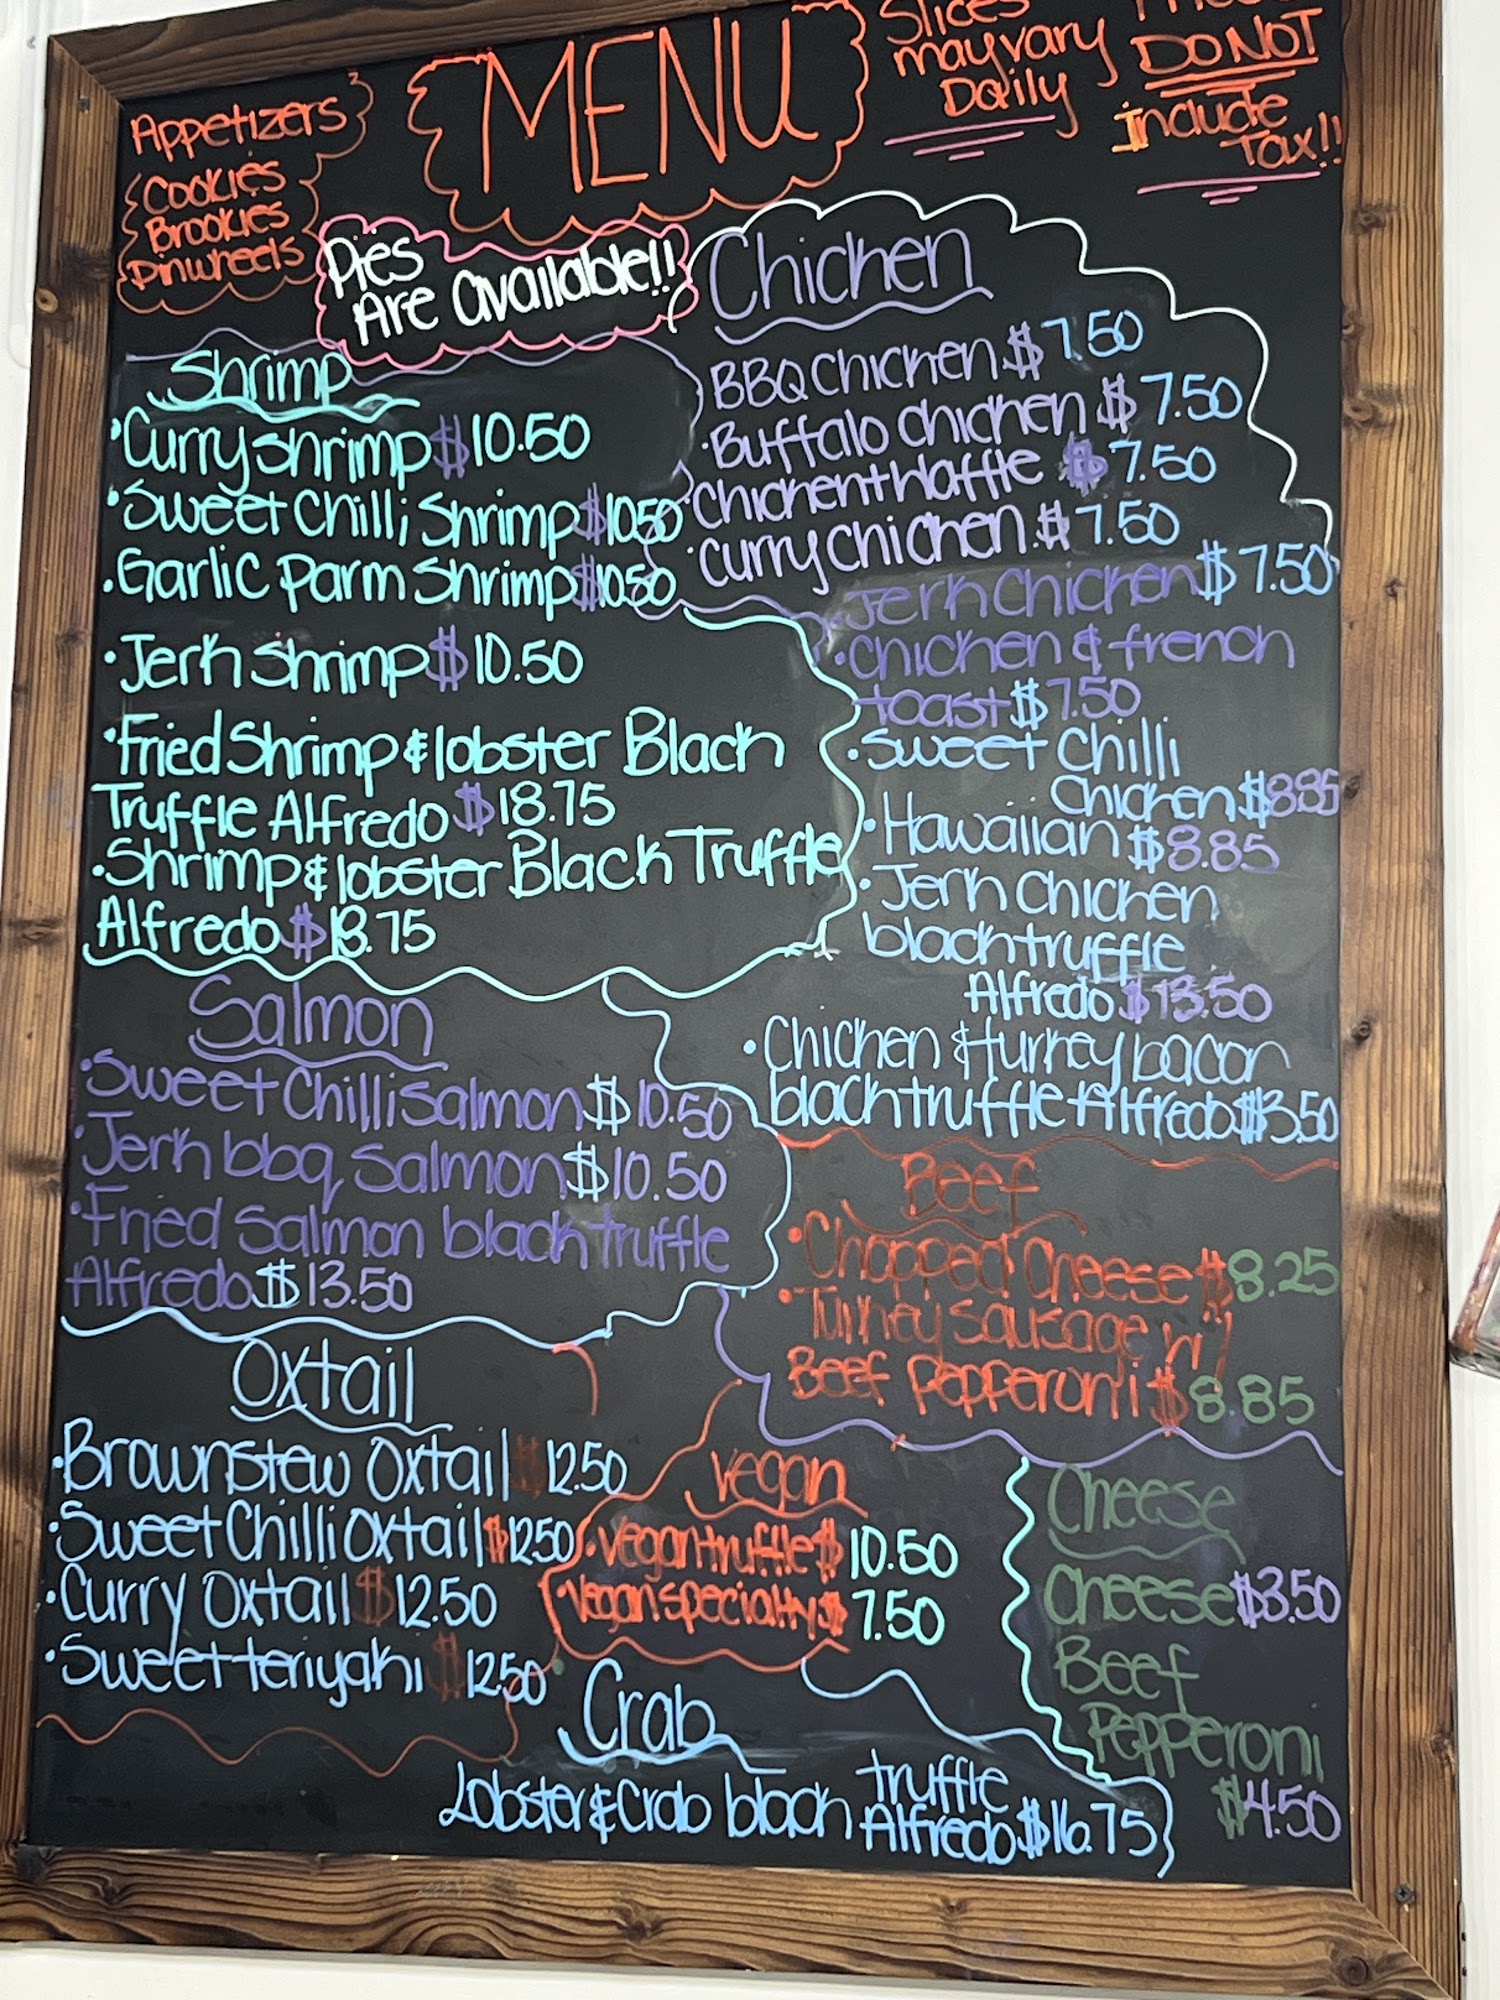 MENU
Slices
may vary
Daily
DO NOT
Include
Tax!!
Appetizers
Cookies
Brookies
Pinwheels
Pies
Are available!!
Shrimp
• Curry Shrimp $10.50
• Sweet Chilli Shrimp $10.50
• Garlic Parm Shrimp $10.50
• Jerk Shrimp $10.50
• Fried Shrimp & lobster Black
Truffle Alfredo $18.75
• Shrimp & lobster Black Truffle
Alfredo $18.75
Chicken
BBQ Chicken $7.50
• Buffalo Chicken $7.50
• Chicken + Waffle $7.50
• Curry Chicken $7.50
Jerk Chicken $7.50
• Chicken & french
toast $7.50
• Sweet Chilli
Chicken $8.85
• Hawaiian $8.85
• Jerk Chicken
black truffle
Alfredo $13.50
• Chicken & turkey bacon
black truffle Alfredo $13.50
Salmon
• Sweet Chilli Salmon $10.50
• Jerk bbq Salmon $10.50
• Fried Salmon black truffle
Alfredo $13.50
Beef
• Chopped Cheese $8.25
• Turkey Sausage w/
Beef Pepperoni $8.85
Oxtail
• Brownstew Oxtail $12.50
• Sweet Chilli Oxtail $12.50
• Curry Oxtail $12.50
• Sweet teriyaki $12.50
Vegan
• Vegan truffle $10.50
• Vegan specialty $7.50
Cheese
Cheese $3.50
Beef
Pepperoni
$4.50
Crab
Lobster & Crab black truffle
Alfredo $16.75